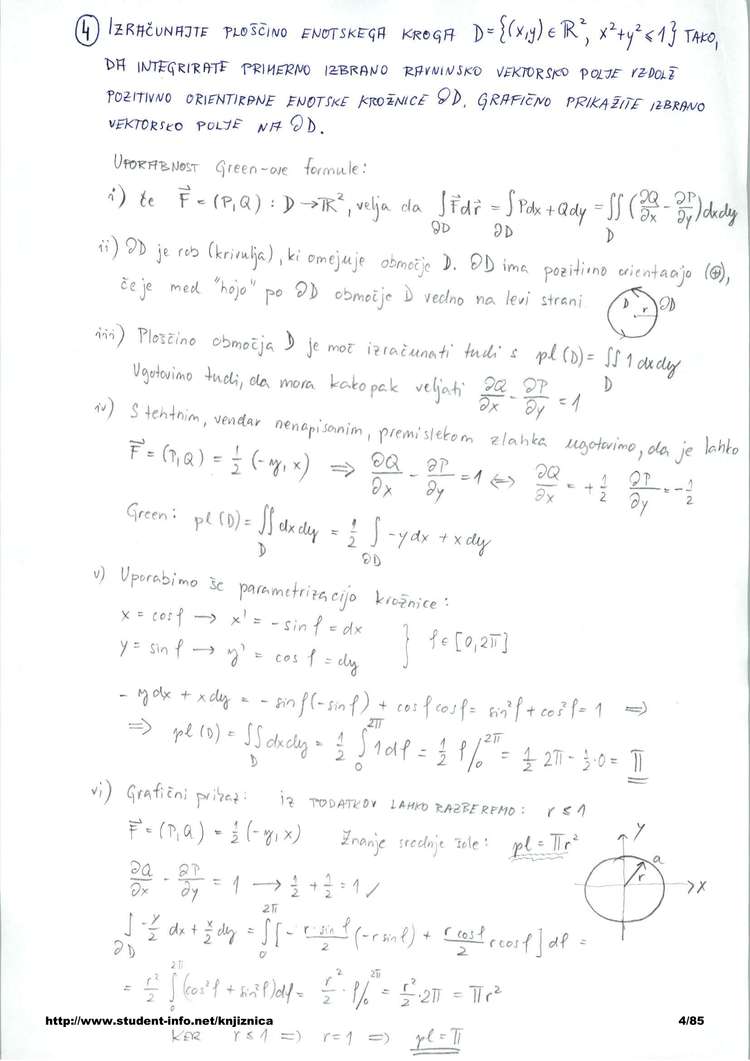 4 IZRAČUNAJTE PLOŠČINO ENOTSKEGA KROGA D={(x,y)∈ℝ², x²+y²≤1} TAKO,
DA INTEGRIRATE PRIMERNO IZBRANO RAVNINSKO VEKTORSKO POLJE VZDOLŽ
POZITIVNO ORIENTIRANE ENOTSKE KROŽNICE ∂D. GRAFIČNO PRIKAŽITE IZBRANO
VEKTORSKO POLJE NA ∂D.
UPORABNOST Green-ove formule:
i) Če F⃗ = (P,Q) : D→ℝ², velja da ∫_∂D F⃗dr⃗ = ∫_∂D Pdx+Qdy = ∬_D (∂Q/∂x - ∂P/∂y)dxdy
ii) ∂D je rob (krivulja), ki omejuje območje D. ∂D ima pozitivno orientacijo (⊕),
če je med "hojo" po ∂D območje D vedno na levi strani
D r ∂D
iii) Ploščino območja D je moč izračunati tudi s pl(D) = ∬_D 1 dxdy
Ugotovimo tudi, da mora kakopak veljati ∂Q/∂x - ∂P/∂y = 1
iv) S tehtnim, vendar nenapisanim, premislekom zlahka ugotovimo, da je lahko
F⃗ = (P,Q) = 1/2 (-y,x) ⇒ ∂Q/∂x - ∂P/∂y = 1 ⇔ ∂Q/∂x = +1/2 ∂P/∂y = -1/2
Green: pl(D) = ∬_D dxdy = 1/2 ∫_∂D -ydx + xdy
v) Uporabimo še parametrizacijo krožnice:
x = cosφ → x' = -sinφ = dx
y = sinφ → y' = cosφ = dy } φ∈[0,2π]
-ydx + xdy = -sinφ(-sinφ) + cosφcosφ = sin²φ + cos²φ = 1 ⇒
⇒ pl(D) = ∬_D dxdy = 1/2 ∫_0^2π 1dφ = 1/2 φ/_0^2π = 1/2 2π - 1/2·0 = π
vi) Grafični prikaz: iz PODATKOV LAHKO RAZBEREMO: r≤1
F⃗ = (P,Q) = 1/2(-y,x) Znanje srednje šole: pl = πr²
∂Q/∂x - ∂P/∂y = 1 → 1/2 + 1/2 = 1 ✓
y a r x
∫_∂D -y/2 dx + x/2 dy = ∫_0^2π [-r·sinφ/2 (-rsinφ) + rcosφ/2 rcosφ] dφ =
= r²/2 ∫_0^2π (cos²φ + sin²φ)dφ = r²/2 · φ/_0^2π = r²/2·2π = πr²
KER r≤1 ⇒ r=1 ⇒ pl=π
http://www.student-info.net/knjiznica 4/85